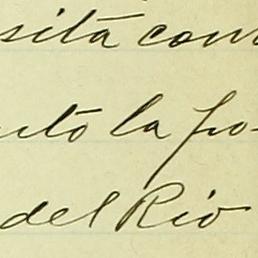 sita con
nto la po-
del Rio